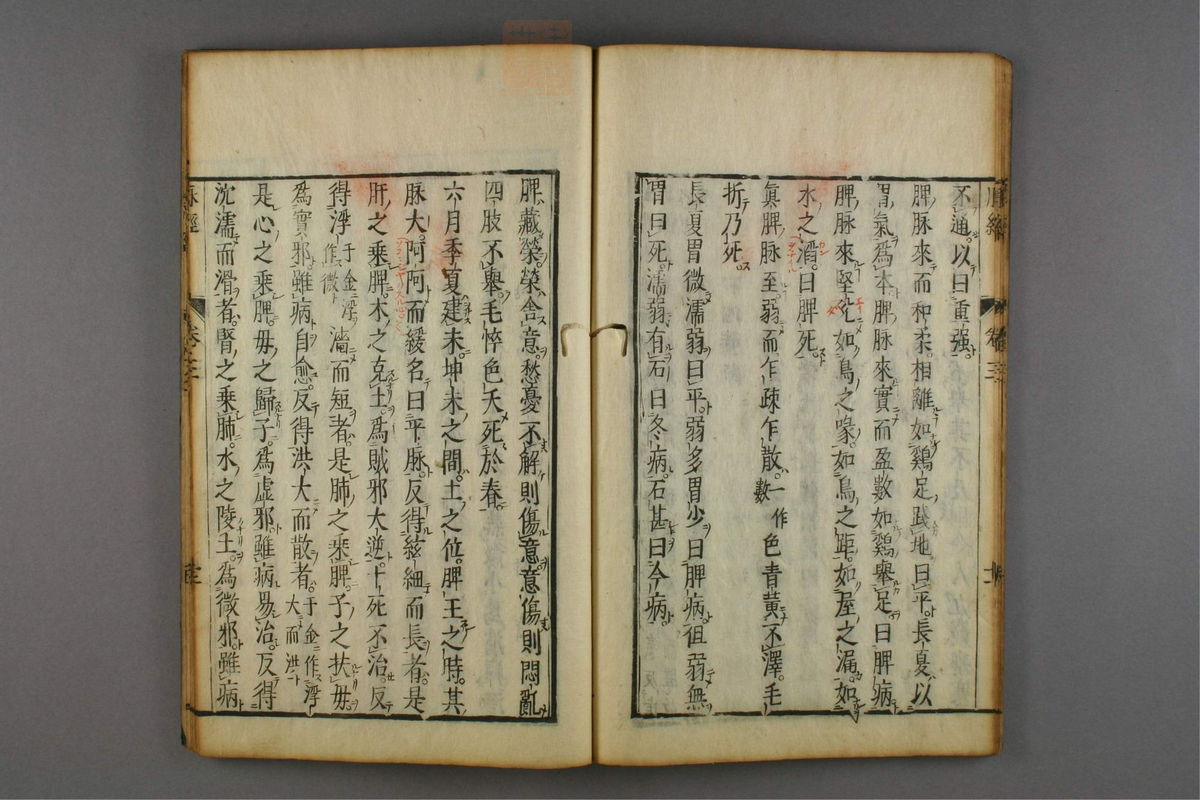 不通。以曰重强。
脾脉來而和柔。相離如鷄足踐地曰平。長夏以
胃氣爲本脾脉來實而盈數如鷄舉足曰脾病
脾脉來堅兊如鳥之喙。如鳥之距。如屋之漏。如
水之溜。曰脾死。
眞脾脉至。弱而乍踈乍散。一作數色青黃不澤。毛
折乃死。
長夏胃微濡弱曰平。弱多胃少曰脾病。徂弱無
胃曰死。濡弱有石曰冬病。石甚曰今病。
脾藏榮榮舎意。愁憂不解則傷意意傷則悶亂
四肢不舉。毛悴色夭死於春。
六月季夏建未坤未之間。土之位。脾王之時。其
脉大。阿阿而緩名曰平脉。反得弦細而長者。是
肝之乘脾。木之克土。爲賊邪大逆。十死不治。反
得浮千金浮作微濇而短者。是肺之乘脾。子之扶毋。
爲實邪雖病自愈。反得洪大而散者。千金作浮大而洪
是心之乘脾。毋之歸子。爲虚邪雖病易治。反得
沈濡而滑者。腎之乘脾。水之陵土。爲微邪。雖病
脉經
卷之三